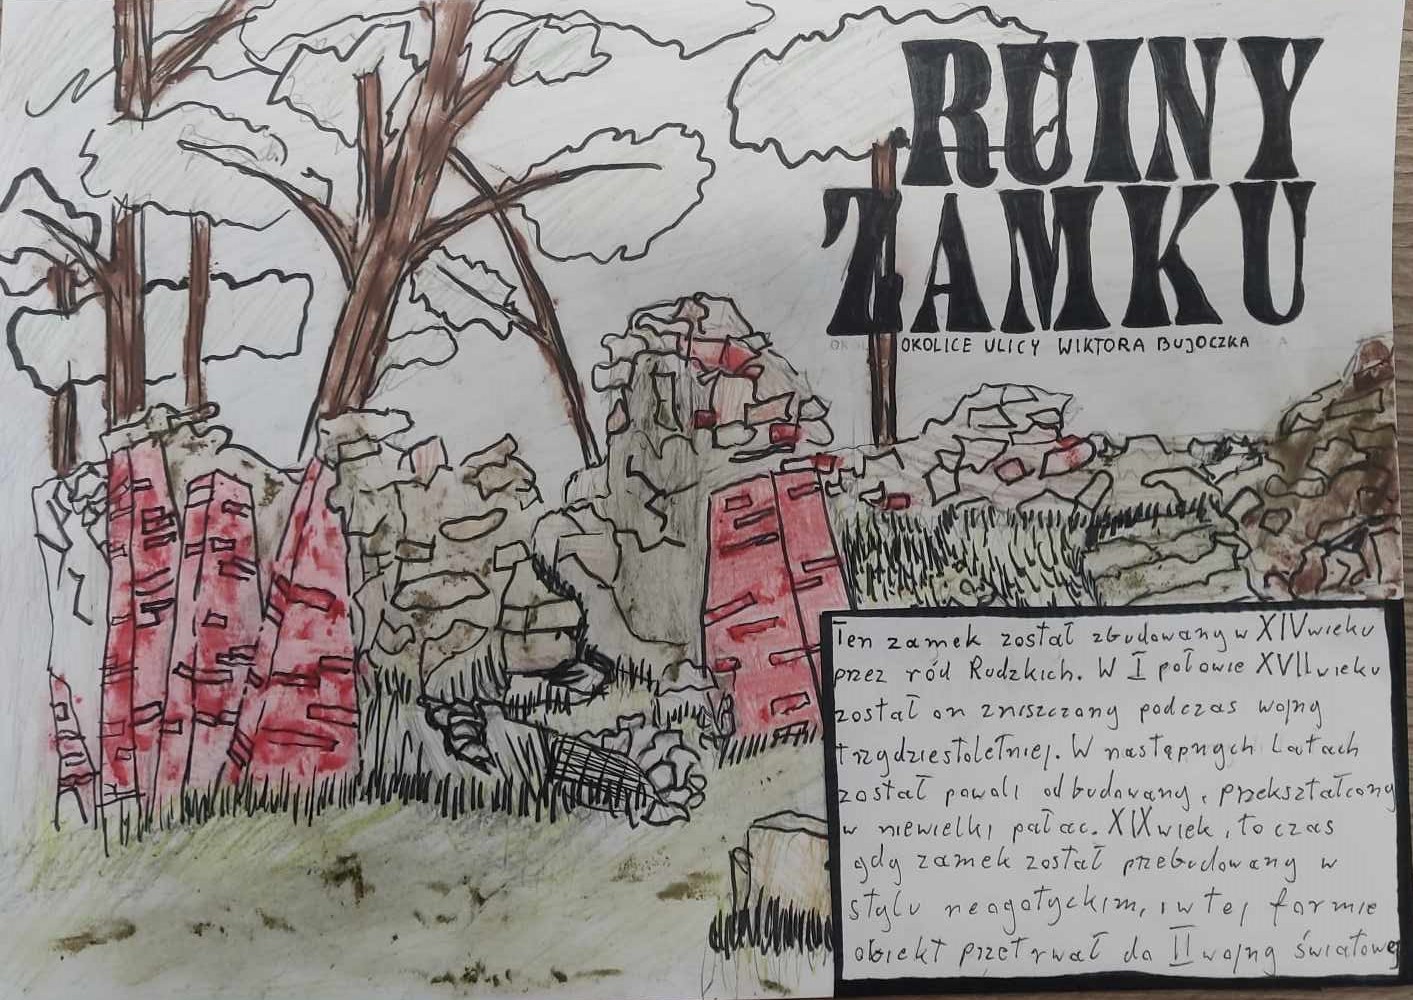 RUINY
ZAMKU
OKOLICE ULICY WIKTORA BUJOCZKA
Ten zamek został zbudowany w XIV wieku
przez ród Rudzkich. W I połowie XVII wieku
został on zniszczony podczas wojny
trzydziestoletniej. W następnych latach
został powoli odbudowany, przekształcony
w niewielki pałac. XIX wiek, to czas
gdy zamek został przebudowany w
stylu neogotyckim, i w tej formie
obiekt przetrwał do II wojny światowej